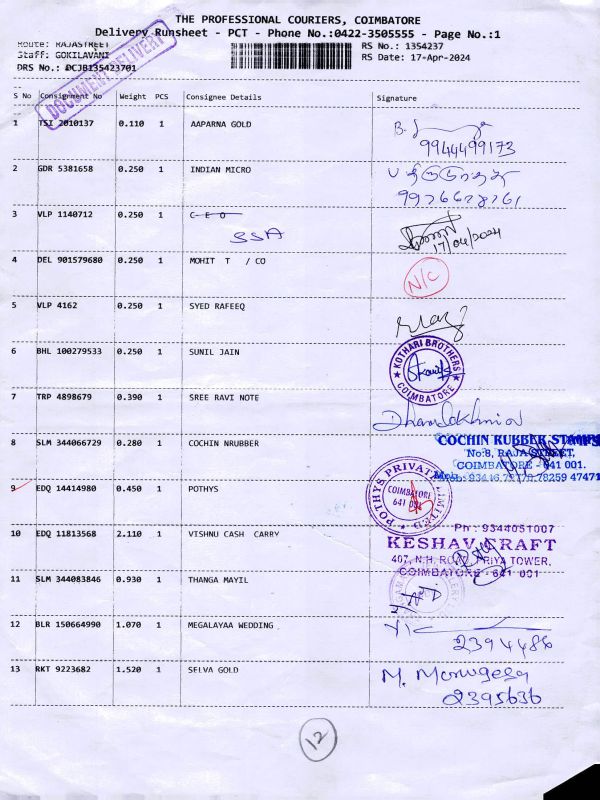 THE PROFESSIONAL COURIERS, COIMBATORE
Delivery Runsheet - PCT - Phone No.:0422-3505555 - Page No.:1
Route: RAJASTREET
RS No.: 1354237
Staff: GOKILAVANI
RS Date: 17-Apr-2024
DRS No.: DCJB135423701
DOCUMENT DELIVERY
S No Consignment No Weight PCS Consignee Details Signature
1 TSI 2010137 0.110 1 AAPARNA GOLD
9944499173
2 GDR 5381658 0.250 1 INDIAN MICRO
3 VLP 1140712 0.250 1 CEO
SSA
17/04/2024
4 DEL 901579680 0.250 1 MOHIT T / CO N/C
5 VLP 4162 0.250 1 SYED RAFEEQ
6 BHL 100279533 0.250 1 SUNIL JAIN
KOTHARI BROTHERS
COIMBATORE
7 TRP 4898679 0.390 1 SREE RAVI NOTE
8 SLM 344066729 0.280 1 COCHIN NRUBBER
COCHIN RUBBER STAMPS
No:8, RAJA STREET,
COIMBATORE - 641 001.
9 EDQ 14414980 0.450 1 POTHYS
POTHYS PRIVATE LIMITED
COIMBATORE
641 001
10 EDQ 11813568 2.110 1 VISHNU CASH CARRY
Ph : 9344051007
KESHAV CRAFT
407, N.H. ROAD, PRIYA TOWER,
COIMBATORE - 641 001
11 SLM 344083846 0.930 1 THANGA MAYIL
12 BLR 150664990 1.070 1 MEGALAYAA WEDDING
2394486
13 RKT 9223682 1.520 1 SELVA GOLD
M. Murugesa
2395636
12